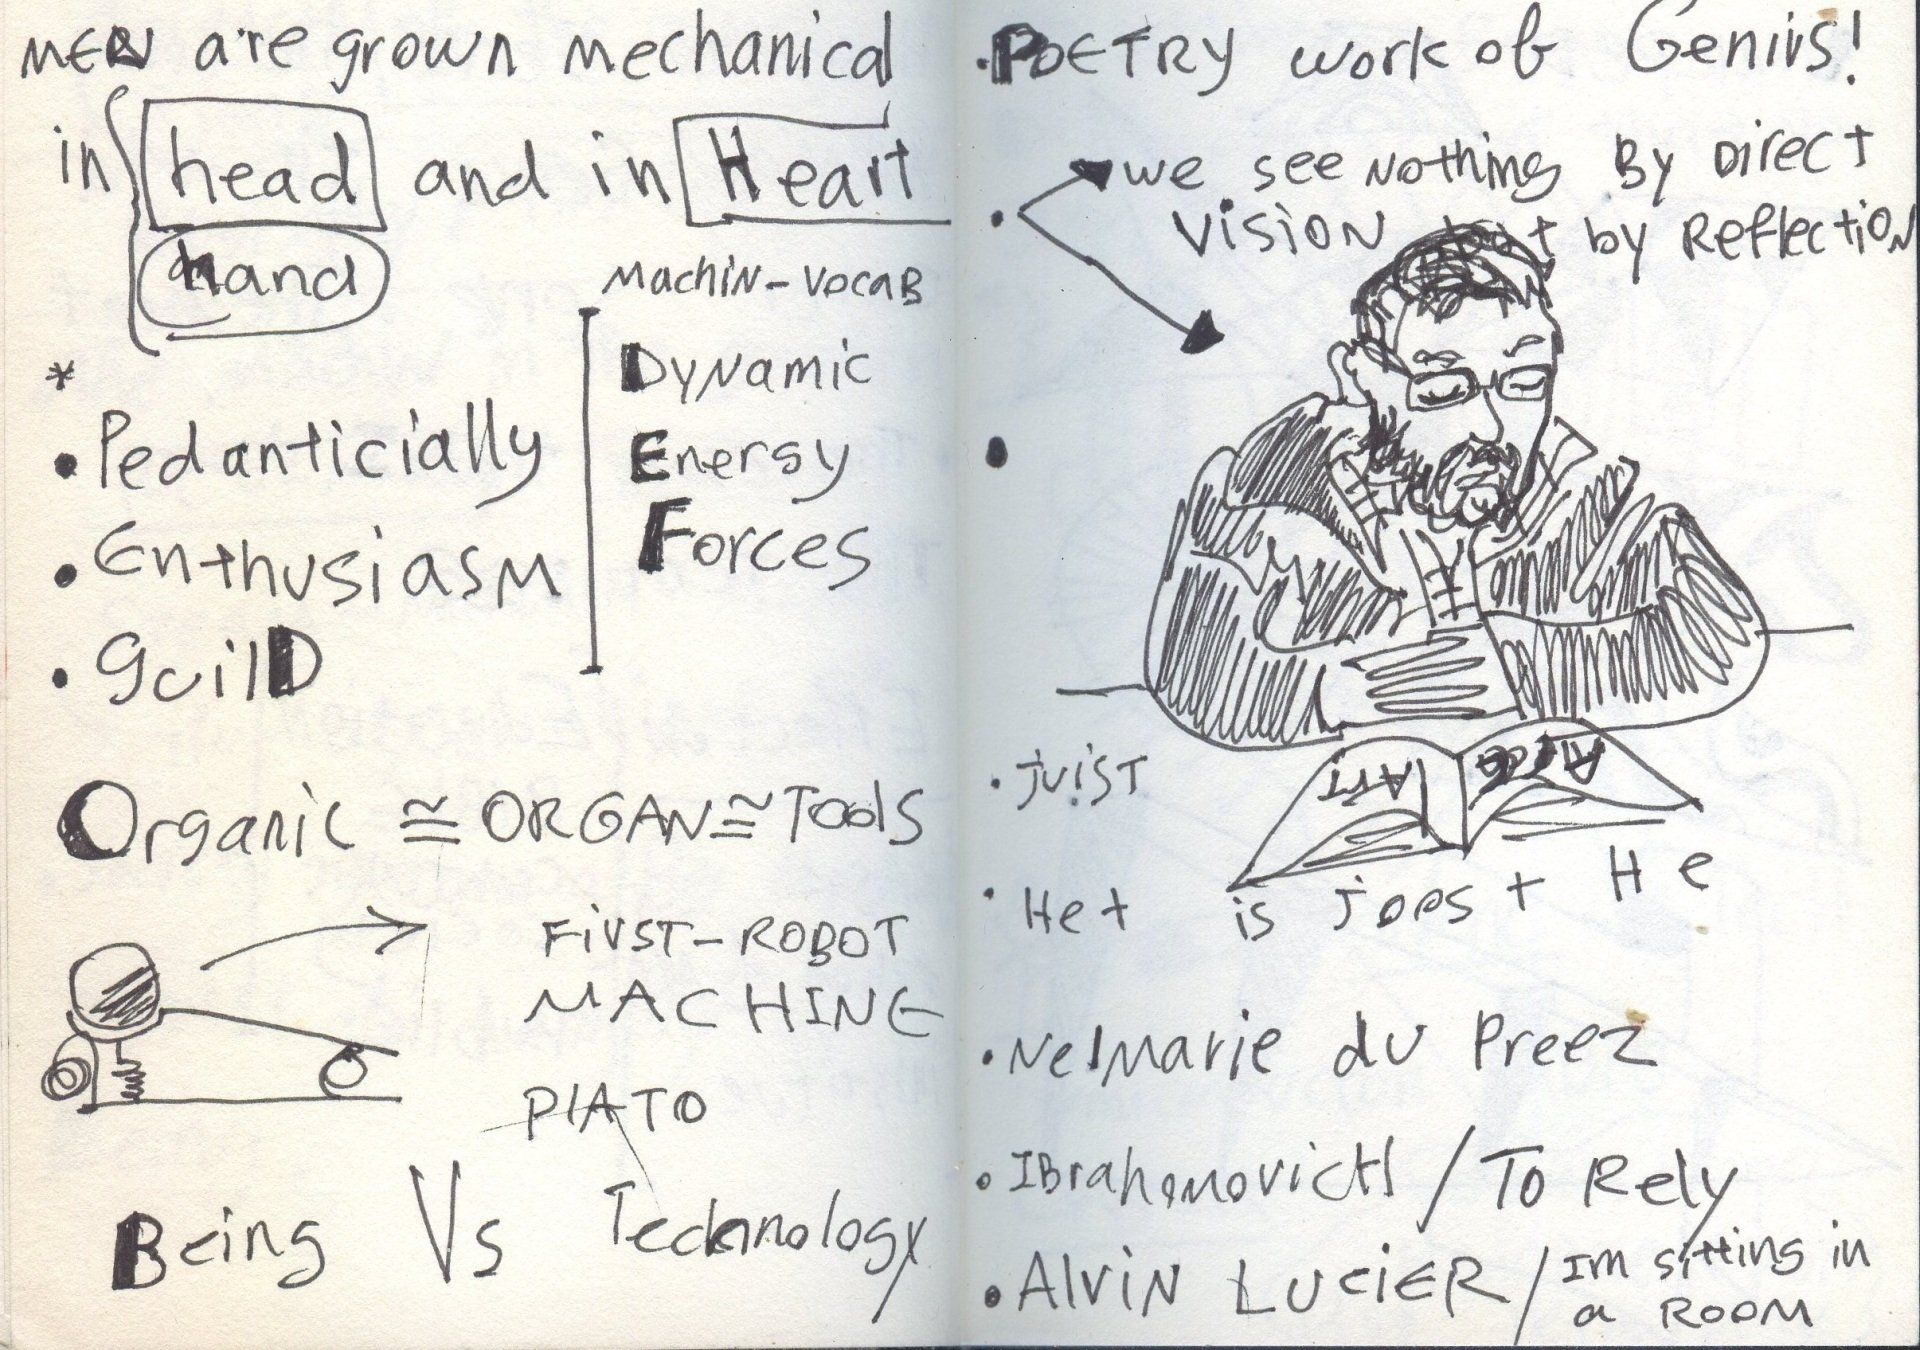 MEN are grown mechanical
in head and in Heart
hand
Machin-vocab
Dynamic
Energy
Forces
*
• Pedanticially
• Enthusiasm
• guilD
Organic ≅ ORGAN ≅ Tools
FIRST-ROBOT
MACHINE
PLATO
Being Vs Technology
• POETRY work of Genius!
• we see Nothing By Direct
Vision but by Reflection
•
• juist
ART
• Het is joost He
• Nelmarie du Preez
• IBrahomovich / To Rely
• Alvin LUCIER / Im sitting in
a ROOM